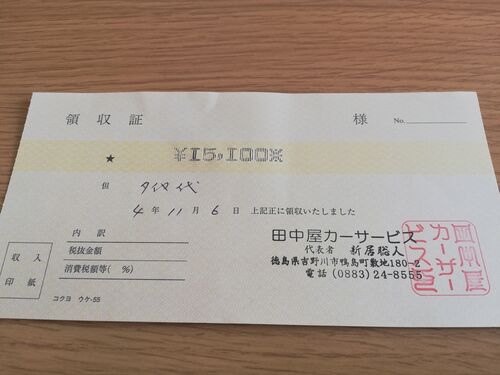 領収証 様 No.
★ ¥15,100※
但 タイヤ代
4年 11月 6日 上記正に領収いたしました
内訳
税抜金額
消費税額等( %)
収入
印紙
コクヨ ウケ-55
田中屋カーサービス
代表者 新居聡人
徳島県吉野川市鴨島町敷地180-2
電話 (0883)24-8555
田中屋
カーサー
ビス